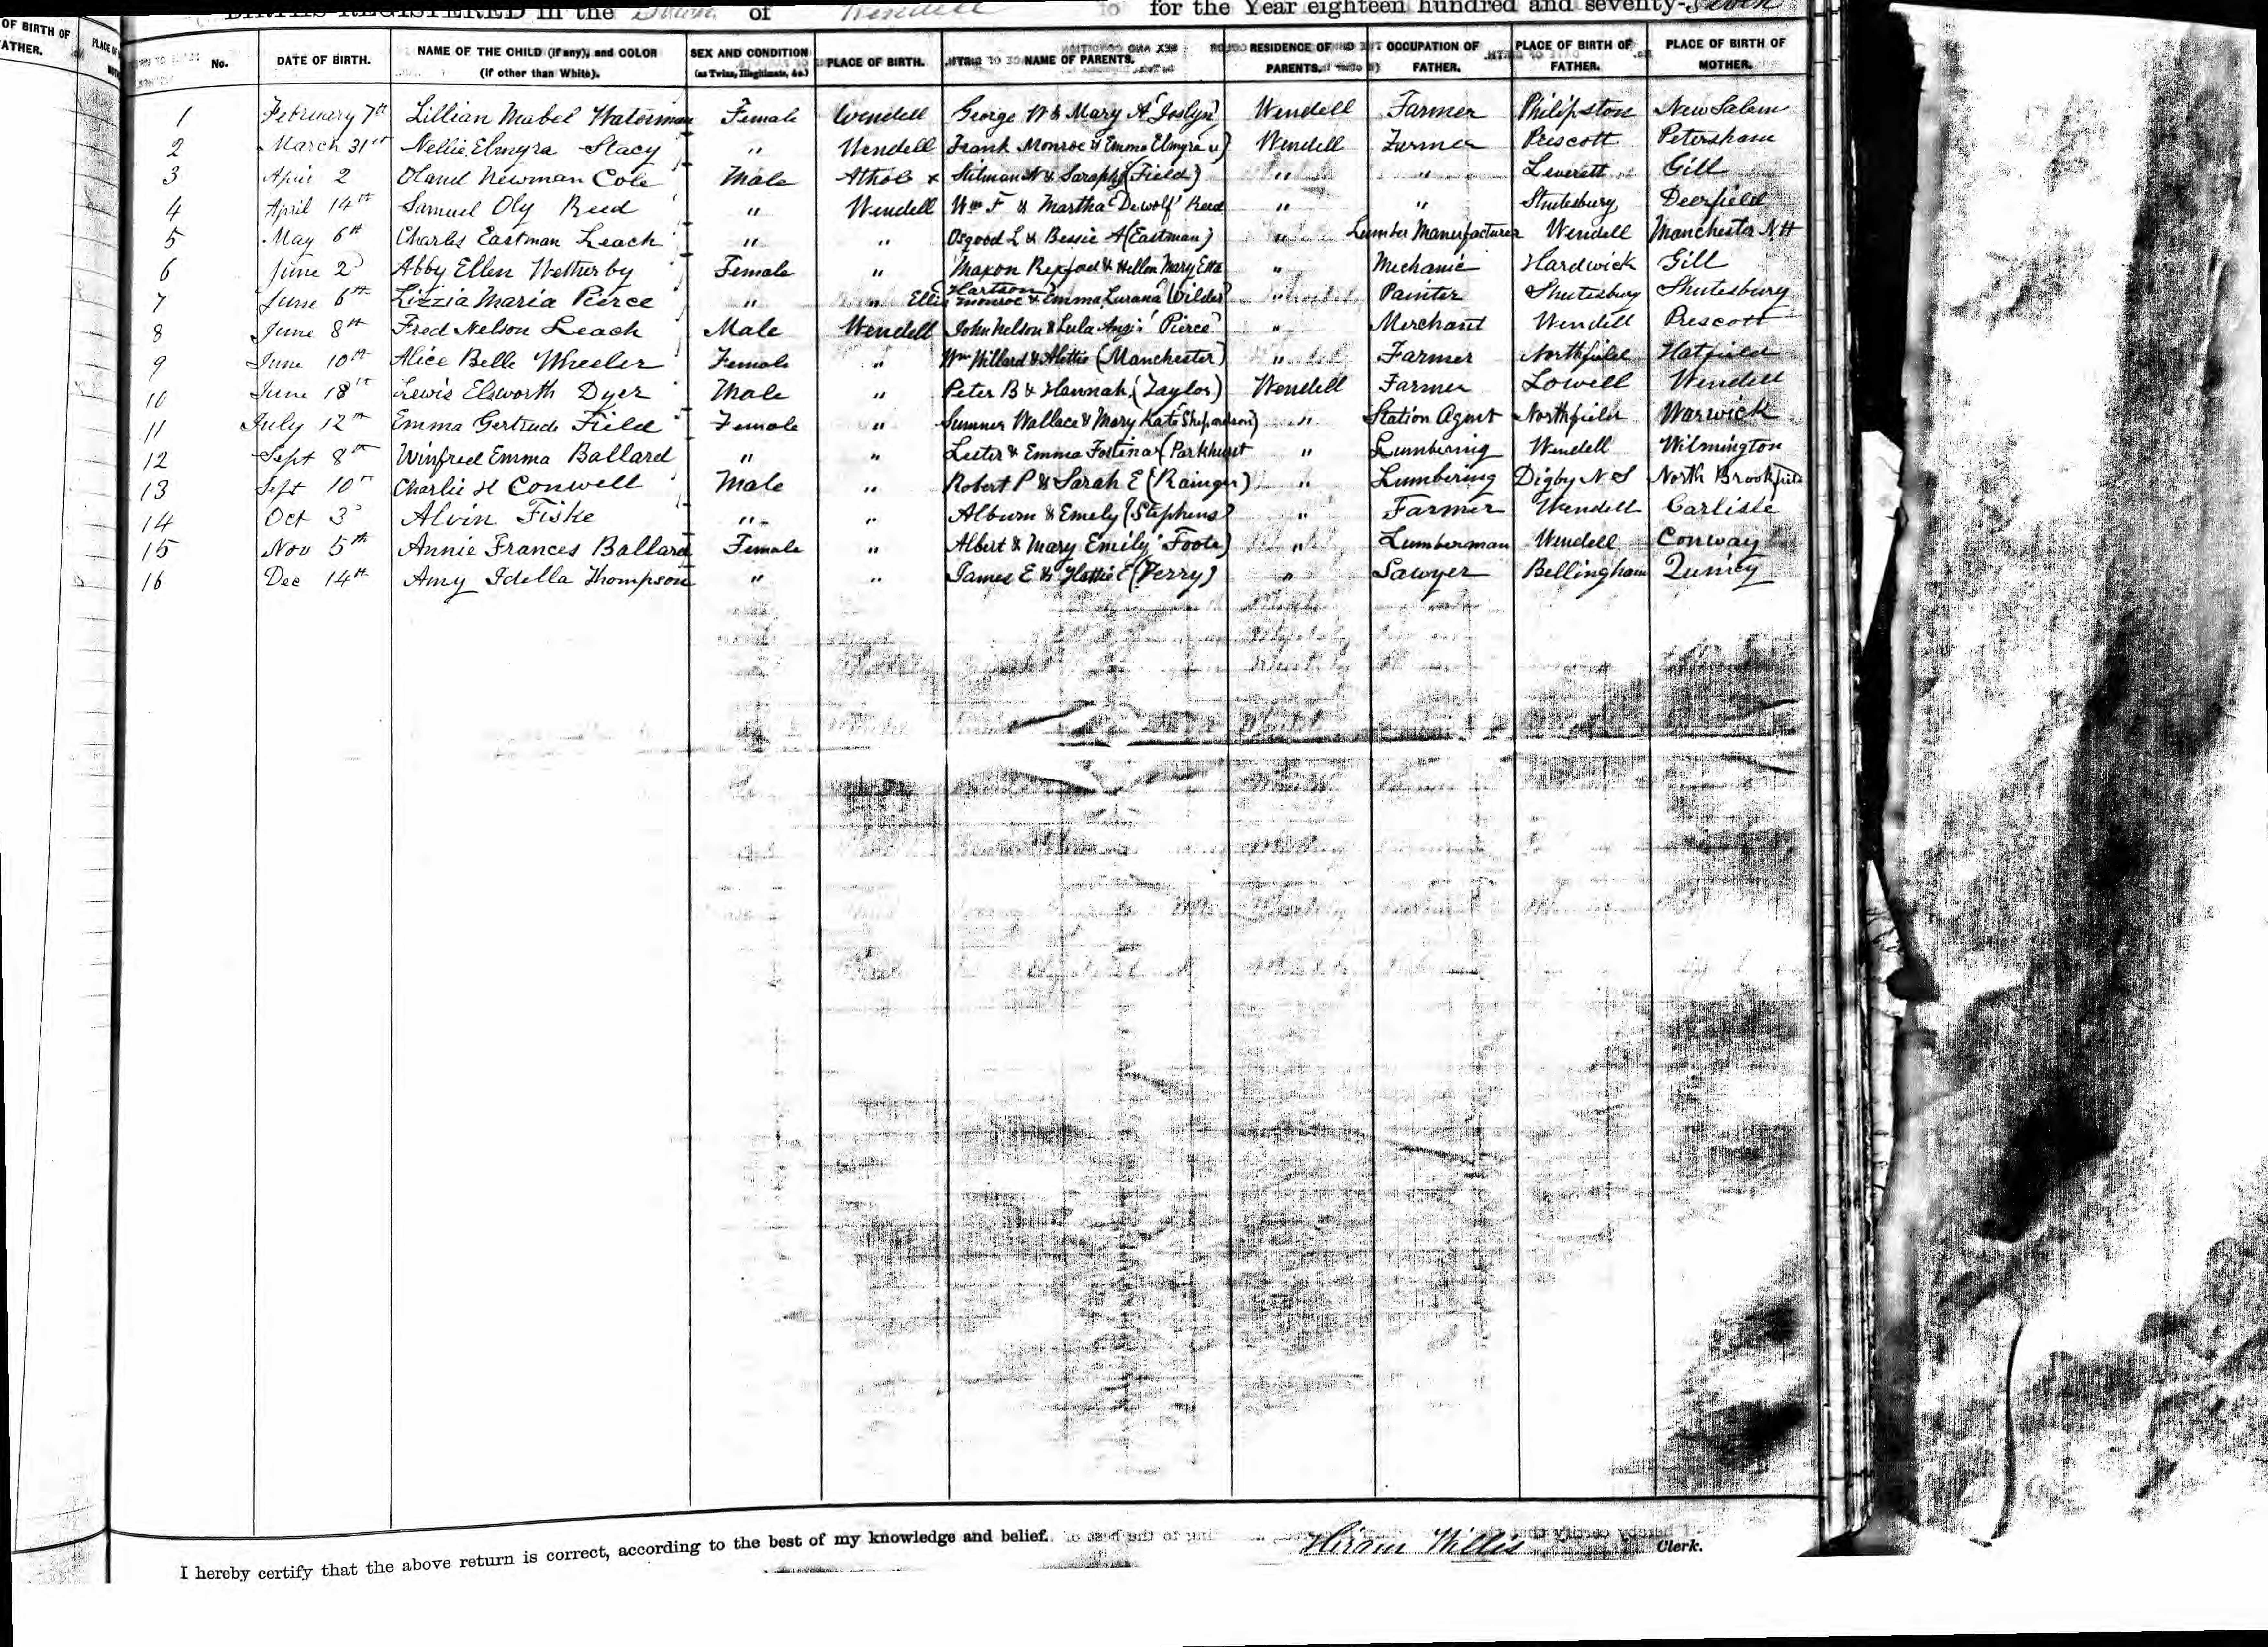 OF BIRTH OF
FATHER.
BIRTHS REGISTERED in the Town of Wendell for the Year eighteen hundred and seventy-seven
No. DATE OF BIRTH. NAME OF THE CHILD (if any), and COLOR (if other than White). SEX AND CONDITION (as Twins, Illegitimate, &c.) PLACE OF BIRTH. NAME OF PARENTS. RESIDENCE OF PARENTS. OCCUPATION OF FATHER. PLACE OF BIRTH OF FATHER. PLACE OF BIRTH OF MOTHER.
1 February 7th Lillian Mabel Waterman Female Wendell George W & Mary A (Joslyn) Wendell Farmer Philipston New Salem
2 March 31st Nellie Elmyra Stacy " Wendell Frank Monroe & Emma Elmyra Wendell Farmer Prescott Petersham
3 April 2 Oland Newman Cole Male Athol x Stilman N & Saraph (Field) " " Leverett Gill
4 April 14th Samuel Oly Reed " Wendell Wm F & Martha Dewolf Reed " " Shutesbury Deerfield
5 May 6th Charles Eastman Leach " " Osgood L & Bessie A (Eastman) " Lumber Manufacturer Wendell Manchester N H
6 June 2d Abby Ellen Wetherby Female " Maxon Rexford & Hellen Mary Etta (Hartson) " Mechanic Hardwick Gill
7 June 6th Lizzia Maria Pierce " " Ellis Monroe & Emma Lurana (Wilder) " Painter Shutesbury Shutesbury
8 June 8th Fred Nelson Leach Male Wendell John Nelson & Lula Angie (Pierce) " Merchant Wendell Prescott
9 June 10th Alice Belle Wheeler Female " Wm Willard & Hattie (Manchester) " Farmer Northfield Hatfield
10 June 18th Lewis Elsworth Dyer Male " Peter B & Hannah (Taylor) Wendell Farmer Lowell Wendell
11 July 12th Emma Gertrude Field Female " Sumner Wallace & Mary Kate (Shepardson) " Station Agent Northfield Warwick
12 Sept 8th Winfred Emma Ballard " " Lester & Emma Fostina (Parkhurst " Lumbering Wendell Wilmington
13 Sept 10th Charlie H Conwell Male " Robert P & Sarah E (Rainger) " Lumbering Digby N S North Brookfield
14 Oct 3d Alvin Fiske " " Alburn & Emely (Stephens) " Farmer Wendell Carlisle
15 Nov 5th Annie Frances Ballard Female " Albert & Mary Emily (Foote) " Lumberman Wendell Conway
16 Dec 14th Amy Idella Thompson " " James E & Hattie E (Perry) " Sawyer Bellingham Quincy
I hereby certify that the above return is correct, according to the best of my knowledge and belief. Hiram Willis Clerk.